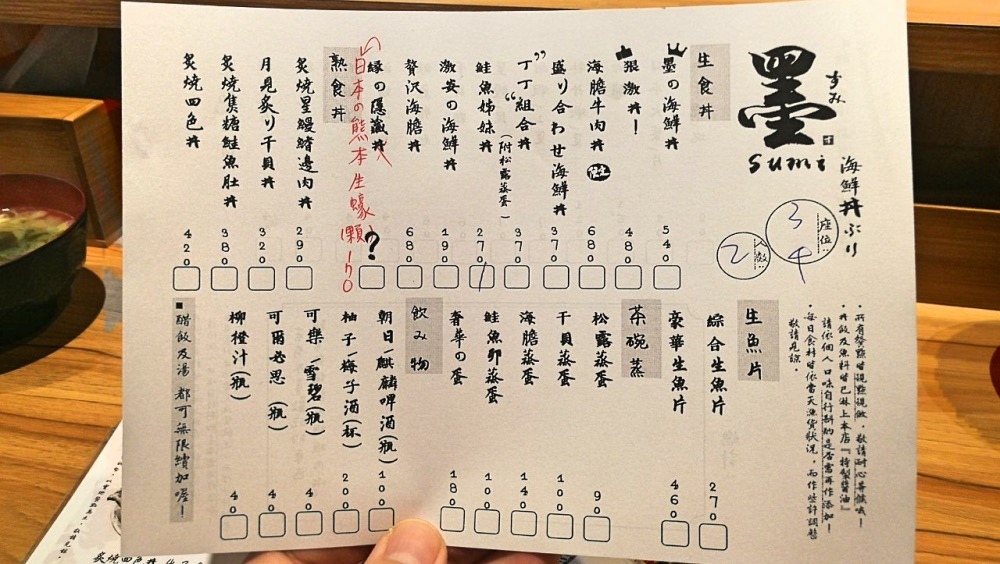 墨
すみ
sumi
海鮮丼ぶり
座位:
3
4
人數:
2
生食丼
墨の海鮮丼 540
狠激丼! 480
海膽牛肉丼 680
盛り合わせ海鮮丼 370
"丁丁組合"丼 370
(附松露蒸蛋)
鮭魚姊妹丼 270
激安の海鮮丼 190
贅沢海膽丼 680
縁の隱藏丼 ?
日本の熊本生蠔
熟食丼
炙燒星鰻鰭邊肉丼 290
月見炙り干貝丼 320
炙燒焦糖鮭魚肚丼 380
炙燒四色丼 420
・所有餐點皆現點現做,敬請耐心等候哦!
・丼飯及魚料皆已淋上本店『特製醬油』
請依個人口味自行斟酌是否需再作添加!
・每日食材皆依當天漁貨狀況,而作些許調整
敬請見諒。
生魚片
綜合生魚片 270
豪華生魚片 460
茶碗蒸
松露蒸蛋 90
干貝蒸蛋 100
海膽蒸蛋 140
鮭魚卵蒸蛋 100
奢華の蛋 180
飲み物
朝日/麒麟啤酒(瓶) 100
柚子/梅子酒(杯) 200
可樂/雪碧(瓶) 40
可爾必思(瓶) 40
柳橙汁(瓶) 40
■醋飯及湯 都可無限續加喔!
炙燒四色丼